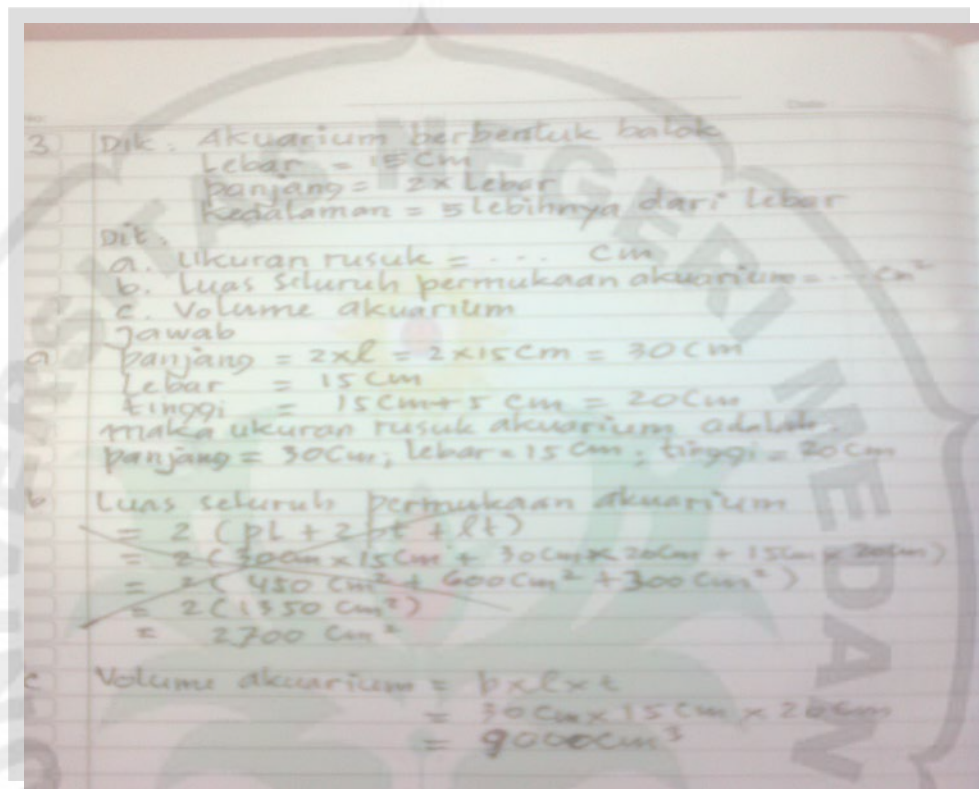 3 Dik. Akuarium berbentuk balok
Lebar = 15 Cm
panjang = 2 x Lebar
Kedalaman = 5 lebihnya dari lebar
Dit.
a. Ukuran rusuk = ... Cm
b. Luas seluruh permukaan akuarium = ... cm²
c. Volume akuarium
Jawab
a panjang = 2xl = 2 x 15 Cm = 30 Cm
Lebar = 15 Cm
tinggi = 15 Cm + 5 Cm = 20 Cm
maka ukuran rusuk akuarium adalah.
panjang = 30 Cm; lebar = 15 Cm; tinggi = 20 Cm
b Luas seluruh permukaan akuarium
= 2 (pl + 2 pt + lt)
= 2 (30 Cm x 15 Cm + 30 Cm x 20 Cm + 15 Cm x 20 Cm)
= 2 (450 Cm² + 600 Cm² + 300 Cm²)
= 2 (1350 Cm²)
= 2700 Cm²
c Volume akuarium = p x l x t
= 30 Cm x 15 Cm x 20 Cm
= 9000 Cm³
NEGERI MEDAN